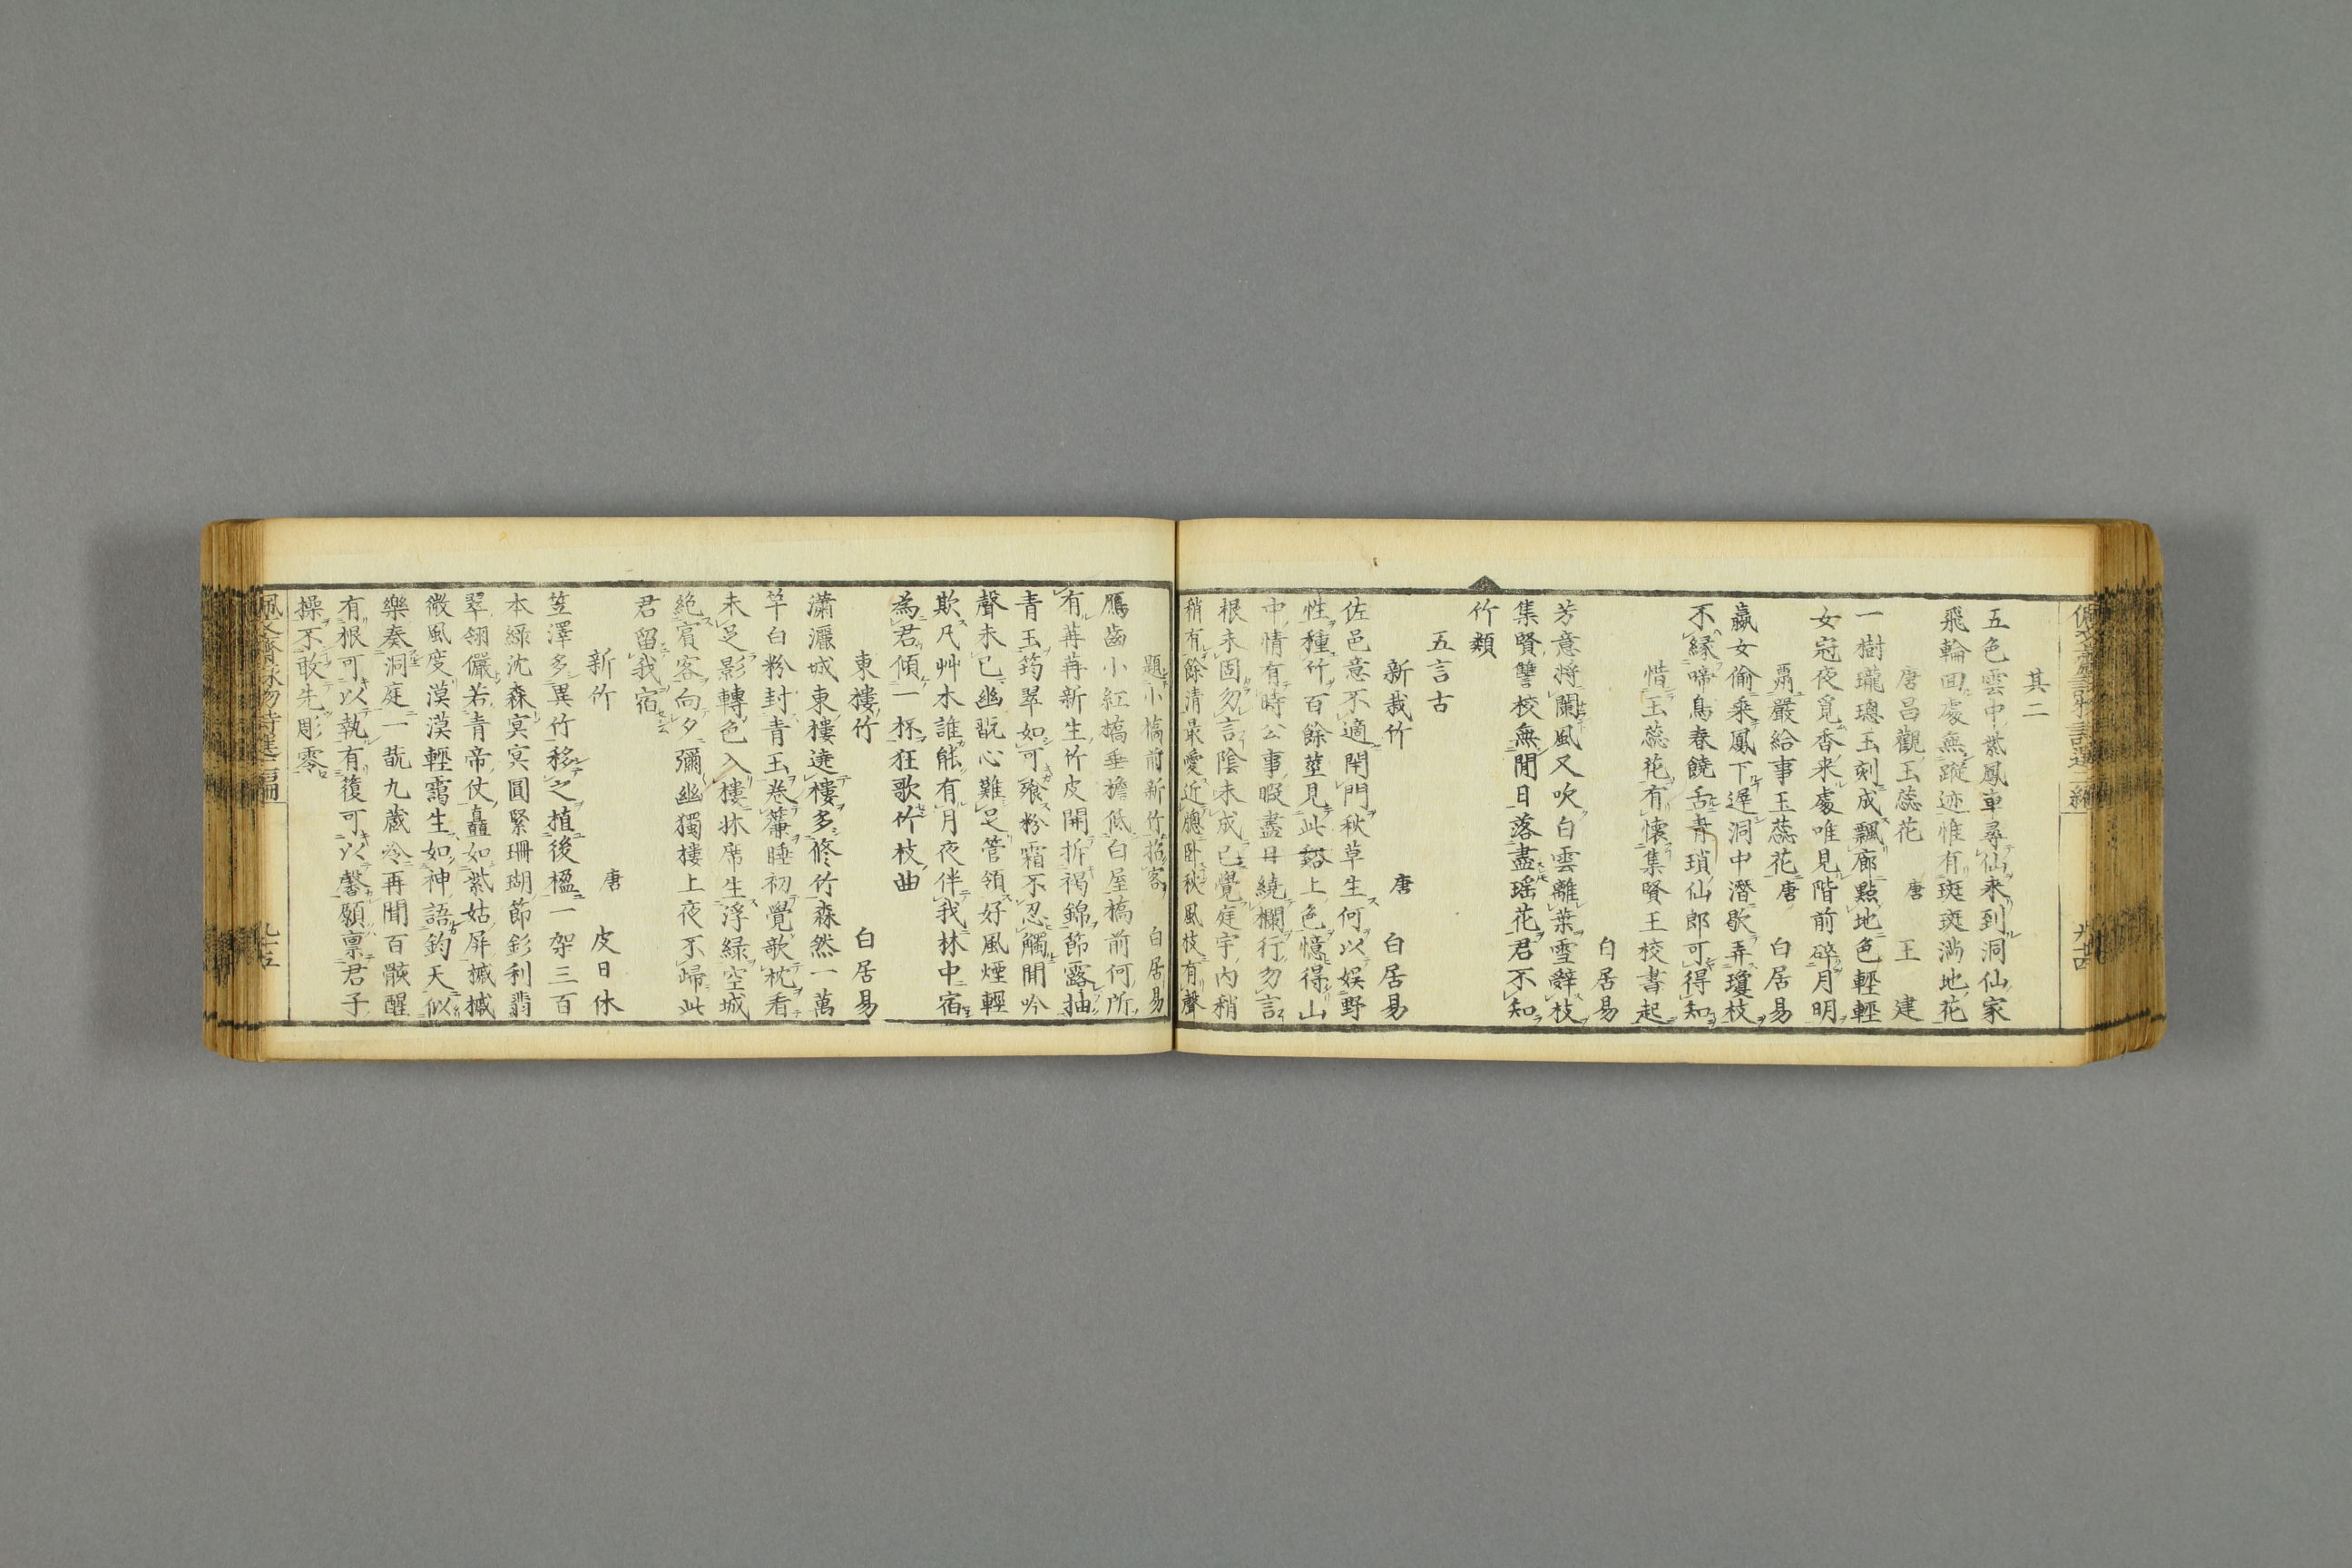 其二
五色雲中紫鳳車尋仙來到洞仙家
飛輪回處無蹤迹惟有斑斑滿地花
唐昌觀玉蕊花 唐 王建
一樹瓏璁玉刻成飄廊點地色輕輕
女冠夜覓香来處唯見階前碎月明
嚴給事玉蕊花 唐 白居易
嬴女偷乘鳳下遲洞中潛歇弄瓊枝
不緣啼鳥春饒舌青瑣仙郎可得知
惜玉蕊花有懷集賢王校書起
白居易
芳意將闌風又吹白雲離葉雪辭枝
集賢讐校無閒日落盡瑶花君不知
竹類
五言古
新栽竹 唐 白居易
佐邑意不適閉門秋草生何以娯野
性種竹百餘莖見此谿上色憶得山
中情有時公事暇盡日繞欄行勿言
根未固勿言陰未成已覺庭宇內稍
稍有餘清最愛近牕卧秋風枝有聲
題小橋前新竹招客 白居易
鴈齒小紅橋垂擔低白屋橋前何所
有苒苒新生竹皮開拆褐錦節露抽
青玉筠翠如可飱粉霜不忍觸閒吟
聲未已幽翫心難足管領好風煙輕
欺凡艸木誰能有月夜伴我林中宿
為君傾一杯狂歌竹枝曲
東樓竹 白居易
瀟灑城東樓遶樓多修竹森然一萬
竿白粉封青玉卷簾睡初覺欹枕看
未足影轉色入樓牀席生浮緑空城
絶賓客向夕彌幽獨樓上夜不歸此
君留我宿
新竹 唐 皮日休
笠澤多異竹移之植後楹一架三百
本緑沈森冥冥圓緊珊瑚節釤利翡
翠翎儼若青帝仗矗如紫姑屏槭槭
微風度漠漠輕靄生如神語鈞天似
樂奏洞庭一翫九藏冷再聞百骸醒
有根可以執有覆可以馨願稟君子
操不敢先彫零
九十五